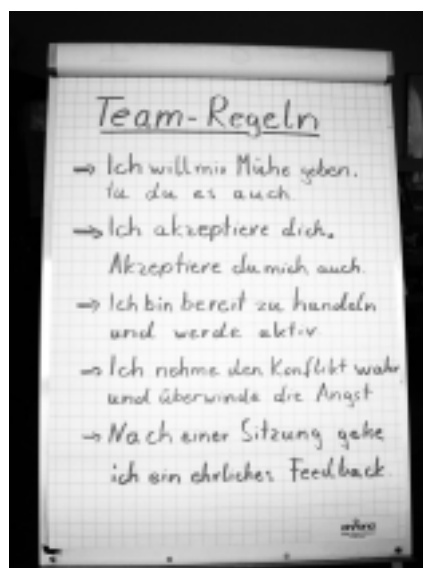 Team-Regeln
→ Ich will mir Mühe geben.
tu du es auch
→ Ich akzeptiere dich.
Akzeptiere du mich auch.
→ Ich bin bereit zu handeln
und werde aktiv
→ Ich nehme den Konflikt wahr
und überwinde die Angst
→ Nach einer Sitzung gebe
ich ein ehrliches Feedback